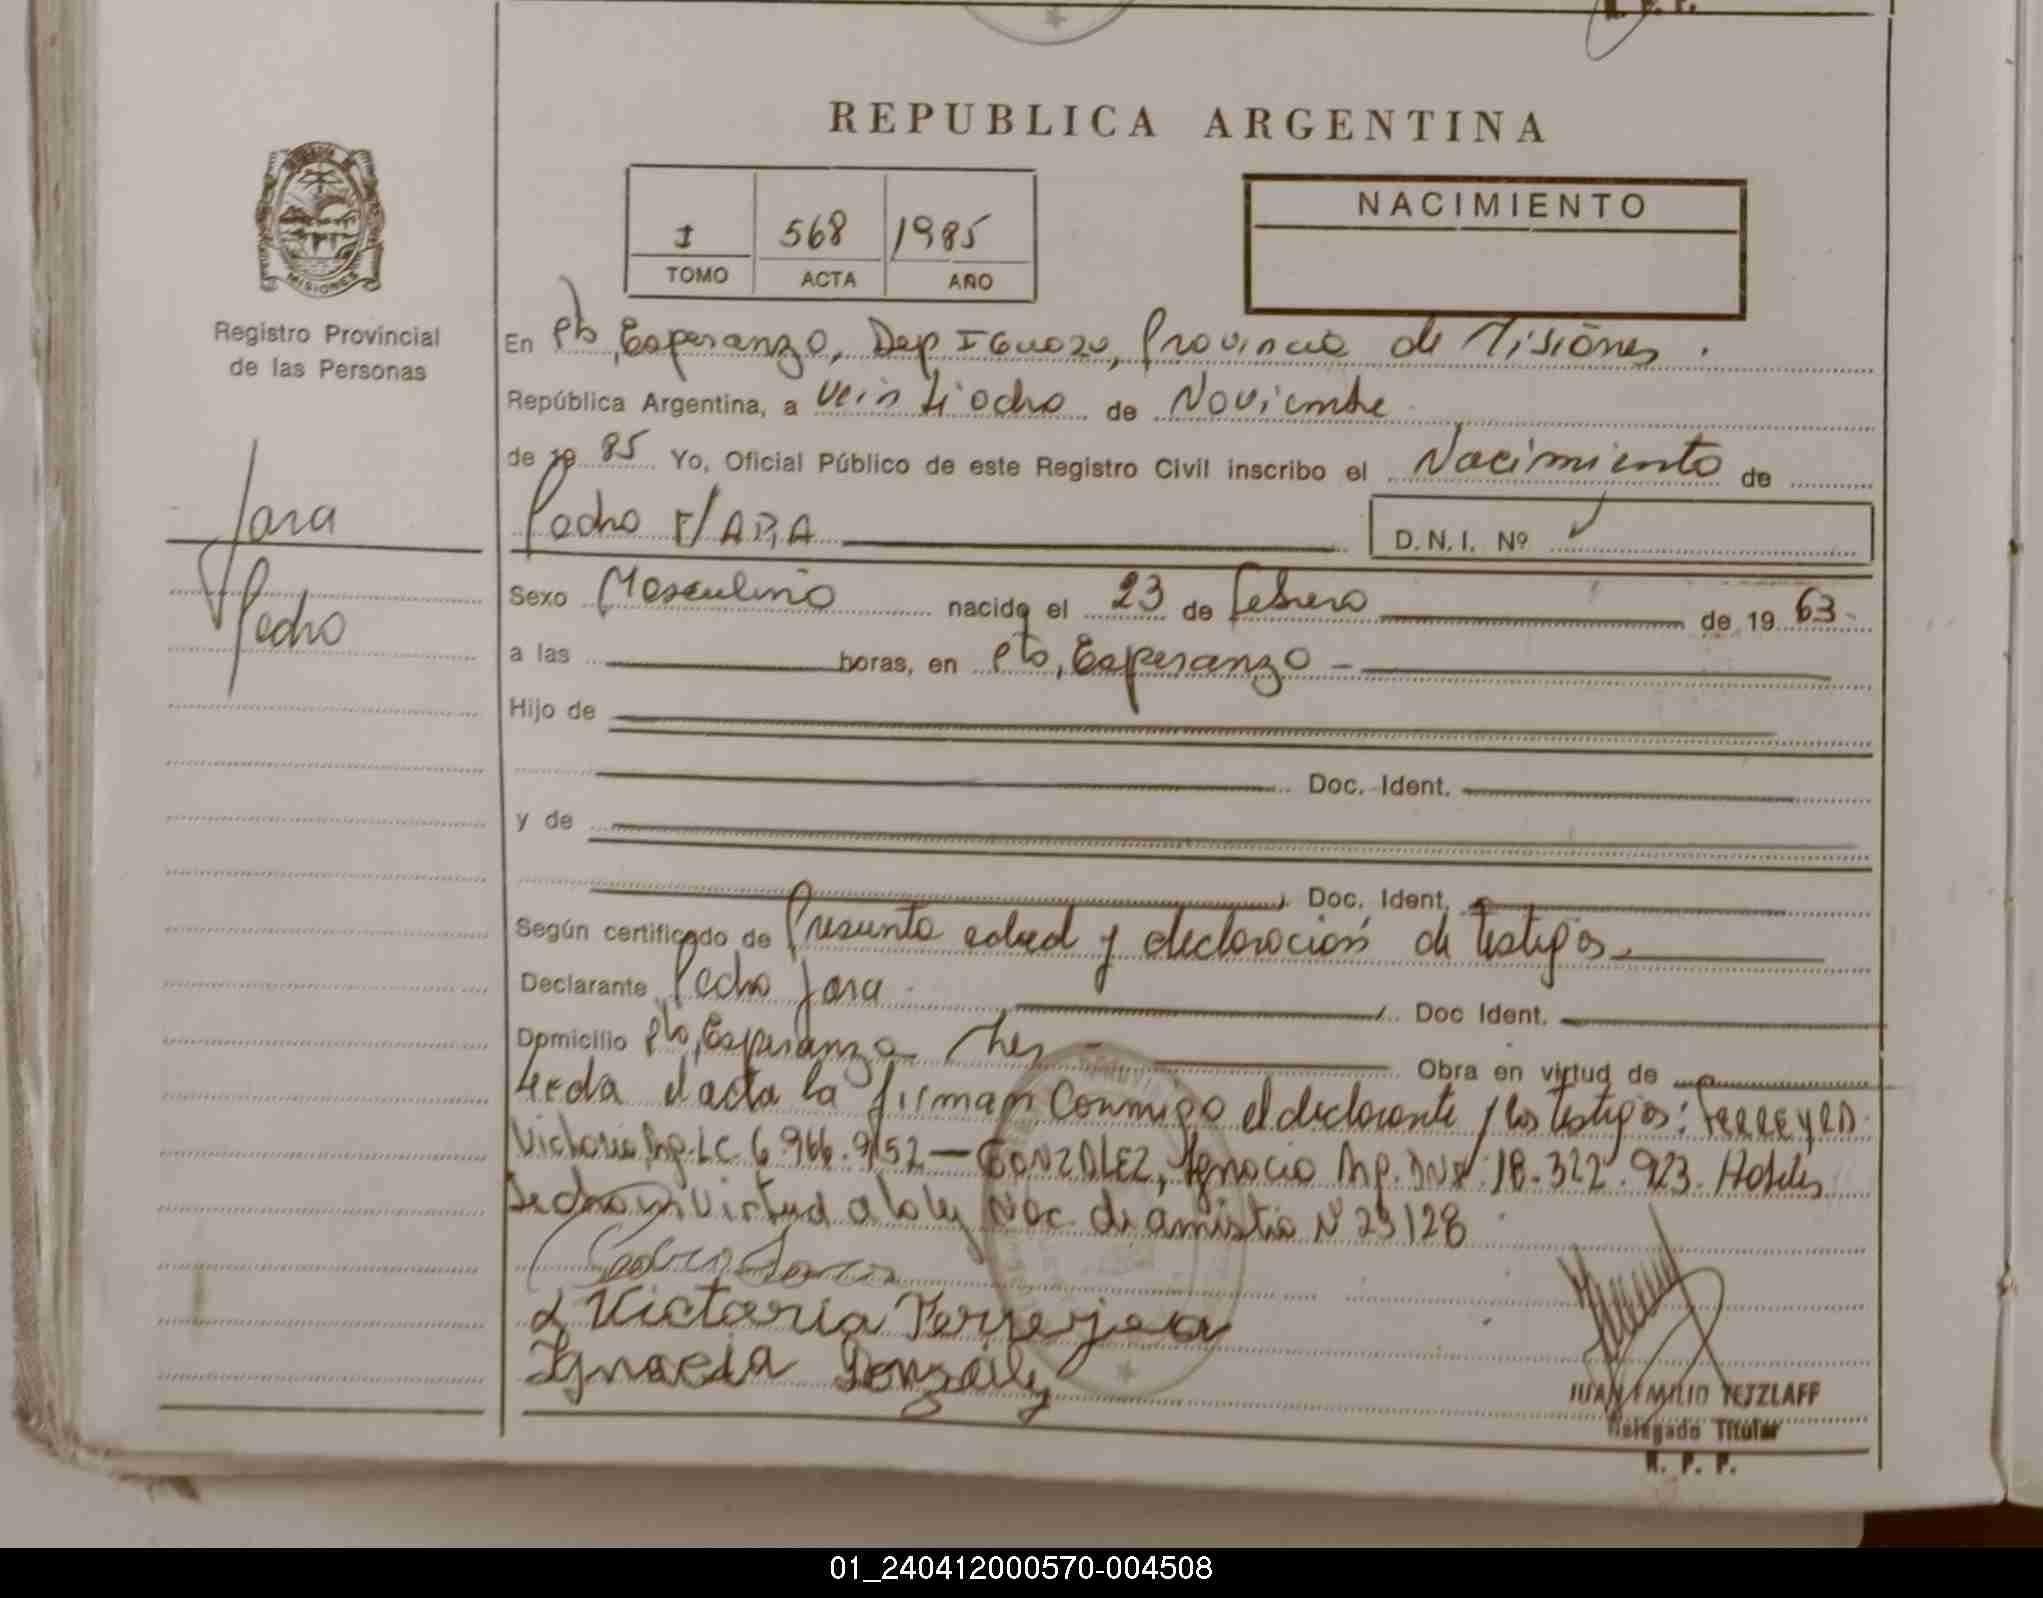 REPUBLICA ARGENTINA
I 568 1985
TOMO ACTA AÑO
NACIMIENTO
MISIONES
Registro Provincial
de las Personas
Jara
Pedro
En Pto, Esperanza, Dep Iguazu, Provincia de Misiones.
República Argentina, a veintiocho de Noviembre
de 19 85 Yo, Oficial Público de este Registro Civil inscribo el Nacimiento de
Pedro JARA
D.N.I. Nº
Sexo Masculino nacido el 23 de Febrero de 19 63
a las horas, en Pto, Esperanza
Hijo de
Doc. Ident.
y de
Doc. Ident.
Según certificado de Presunta edad y declaración de testigos
Declarante Pedro Jara Doc Ident.
Domicilio Pto, Esperanza Obra en virtud de
Leida el acta la firman conmigo el declarante y los testigos: FERREYRA
Victoria, LC 6.966.952 — GONZALEZ, DNI: 18.322.923.
en virtud a la ley Nac de amistia Nº 23128
Pedro Jara
Victoria Ferreyra
Ignacia
JUAN EMILIO TETZLAFF
Delegado Titular
R. P. P.
01_240412000570-004508